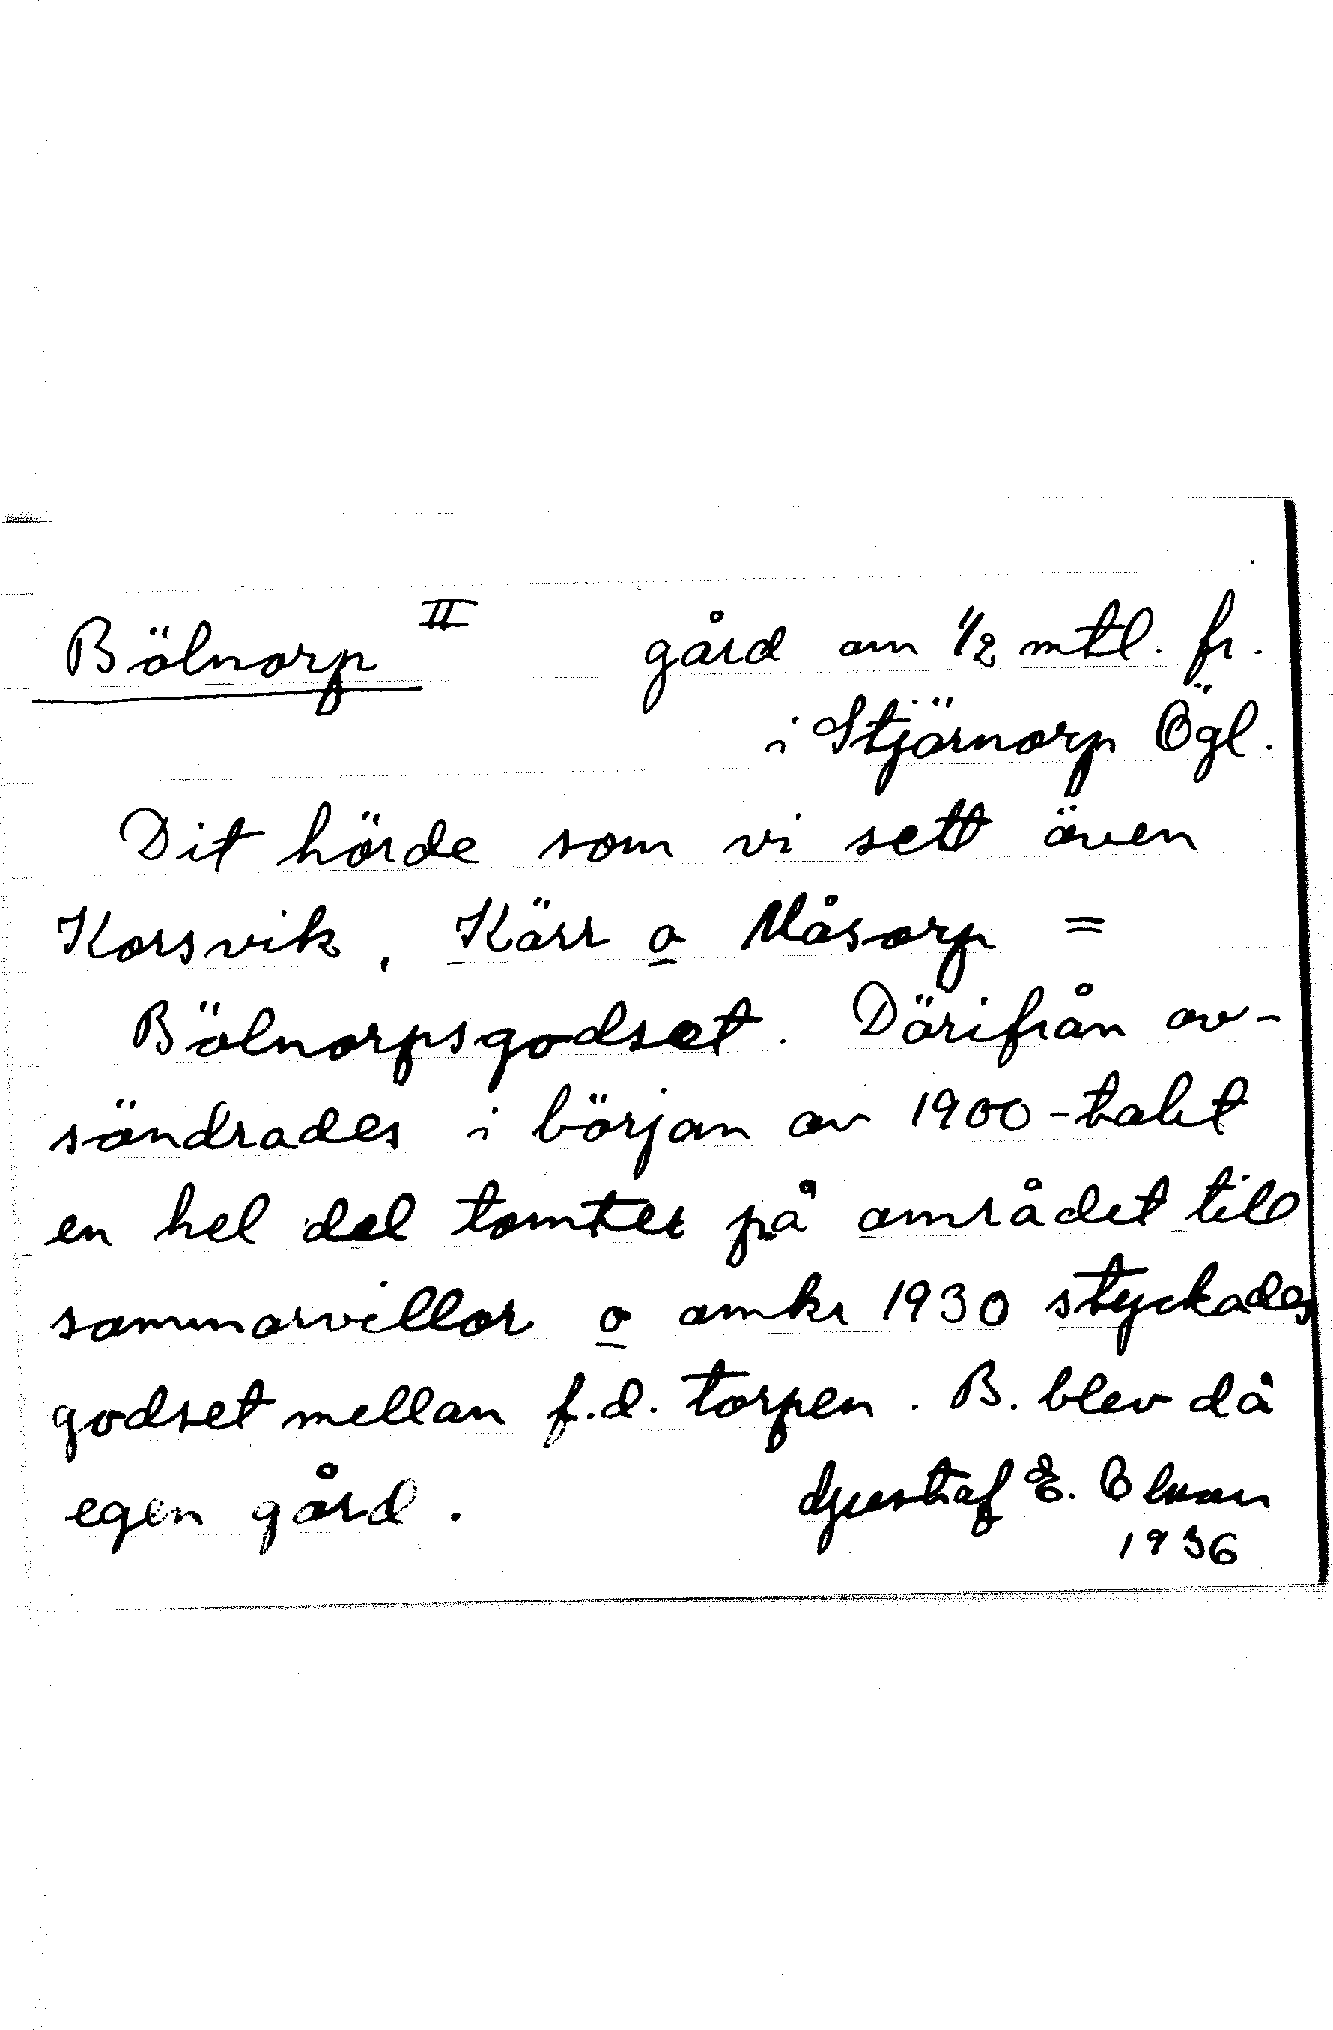 Bölnorp II gård om 1/2 mtl. fr.
i Stjärnorp Ögl.
Dit hörde som vi sett även
Korsvik, Kärr o Måsorp =
Bölnorpsgodset. Därifrån av-
söndrades i början av 1900-talet
en hel del tomter på området till
sommarvillor o omkr 1930 styckades
godset mellan f.d. torpen. B. blev då
egen gård. Gustaf E.
1936